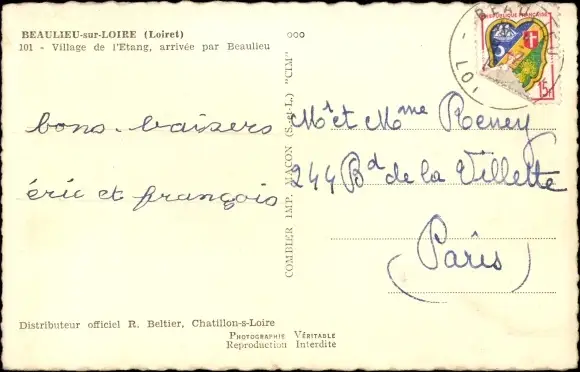 BEAULIEU-sur-LOIRE (Loiret)
101 - Village de l'Etang, arrivée par Beaulieu
ooo
bons baisers
éric et françois
COMBIER IMP. MACON (S.-et-L.) "CIM"
RÉPUBLIQUE FRANÇAISE
15F
Mr et Mme
244 Bd de la Villette
Paris
Distributeur officiel R. Beltier, Chatillon-s-Loire
PHOTOGRAPHIE VÉRITABLE
Reproduction Interdite